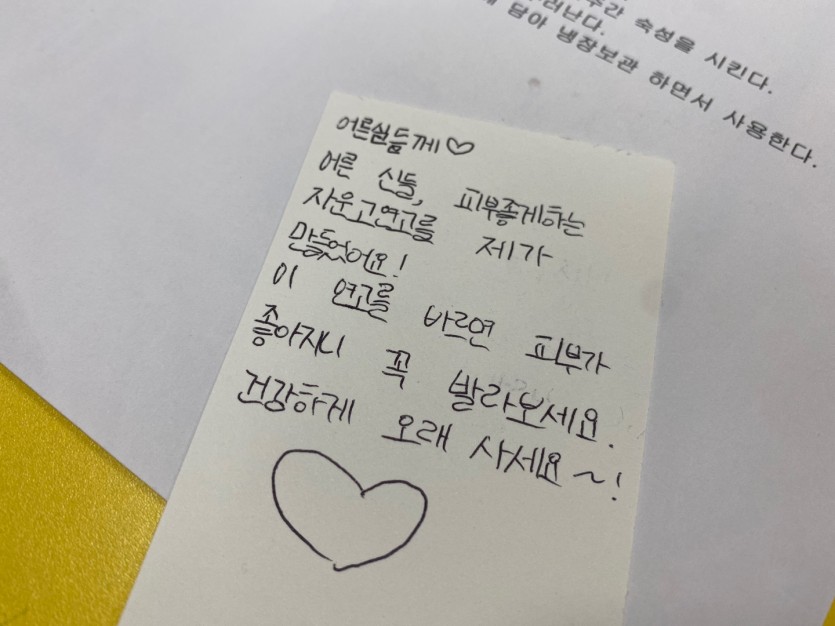 주간 숙성을 시킨다.
담아 냉장보관 하면서 사용한다.
어른신들께♡
어른 신들, 피부좋게하는
자운고연고를 제가
만들었어요!
이 연고를 바르면 피부가
좋아지니 꼭 발라보세요.
건강하게 오래 사세요~!